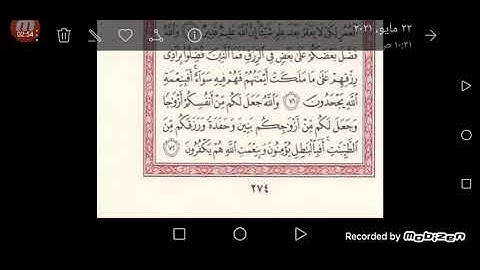 ٢٢ مايو، ٢٠٢١
١٠:٣١ ص
02:54
ٱلْعُمُرِ لِكَىْ لَا يَعْلَمَ بَعْدَ عِلْمٍ شَيْـًٔا إِنَّ ٱللَّهَ عَلِيمٌ قَدِيرٌ ٧٠ وَٱللَّهُ
فَضَّلَ بَعْضَكُمْ عَلَىٰ بَعْضٍ فِى ٱلرِّزْقِ فَمَا ٱلَّذِينَ فُضِّلُوا۟ بِرَآدِّى
رِزْقِهِمْ عَلَىٰ مَا مَلَكَتْ أَيْمَٰنُهُمْ فَهُمْ فِيهِ سَوَآءٌ أَفَبِنِعْمَةِ
ٱللَّهِ يَجْحَدُونَ ٧١ وَٱللَّهُ جَعَلَ لَكُم مِّنْ أَنفُسِكُمْ أَزْوَٰجًا
وَجَعَلَ لَكُم مِّنْ أَزْوَٰجِكُم بَنِينَ وَحَفَدَةً وَرَزَقَكُم مِّنَ
ٱلطَّيِّبَٰتِ أَفَبِٱلْبَٰطِلِ يُؤْمِنُونَ وَبِنِعْمَتِ ٱللَّهِ هُمْ يَكْفُرُونَ ٧٢
٢٧٤
Recorded by Mobizen